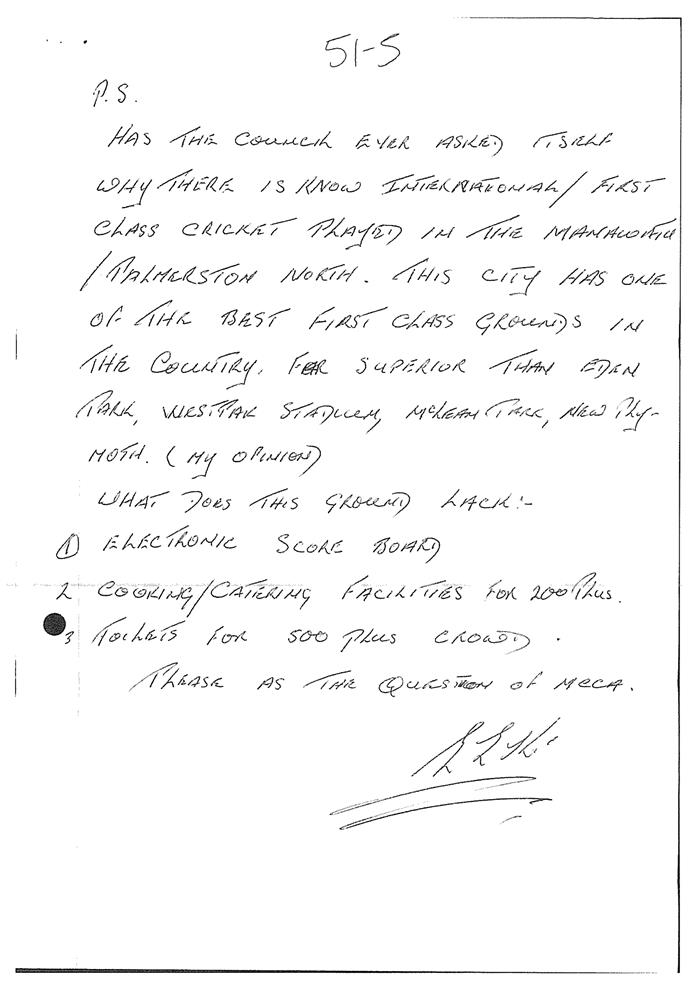 51-5
P.S.
HAS THE COUNCIL EVER ASKED ITSELF
WHY THERE IS KNOW INTERNATIONAL/FIRST
CLASS CRICKET PLAYED IN THE MANAWATU
/PALMERSTON NORTH. THIS CITY HAS ONE
OF THE BEST FIRST CLASS GROUNDS IN
THE COUNTRY. FAR SUPERIOR THAN EDEN
PARK, WESTPAK STADIUM, McLEAN PARK, NEW PLY-
MOTH. (MY OPINION)
WHAT DOES THIS GROUND LACK:-
① ELECTRONIC SCORE BOARD
2 COOKING/CATERING FACILITIES FOR 200 PLUS.
3 TOILETS FOR 500 PLUS CROWD.
PLEASE AS THE QUESTION OF MCCA.